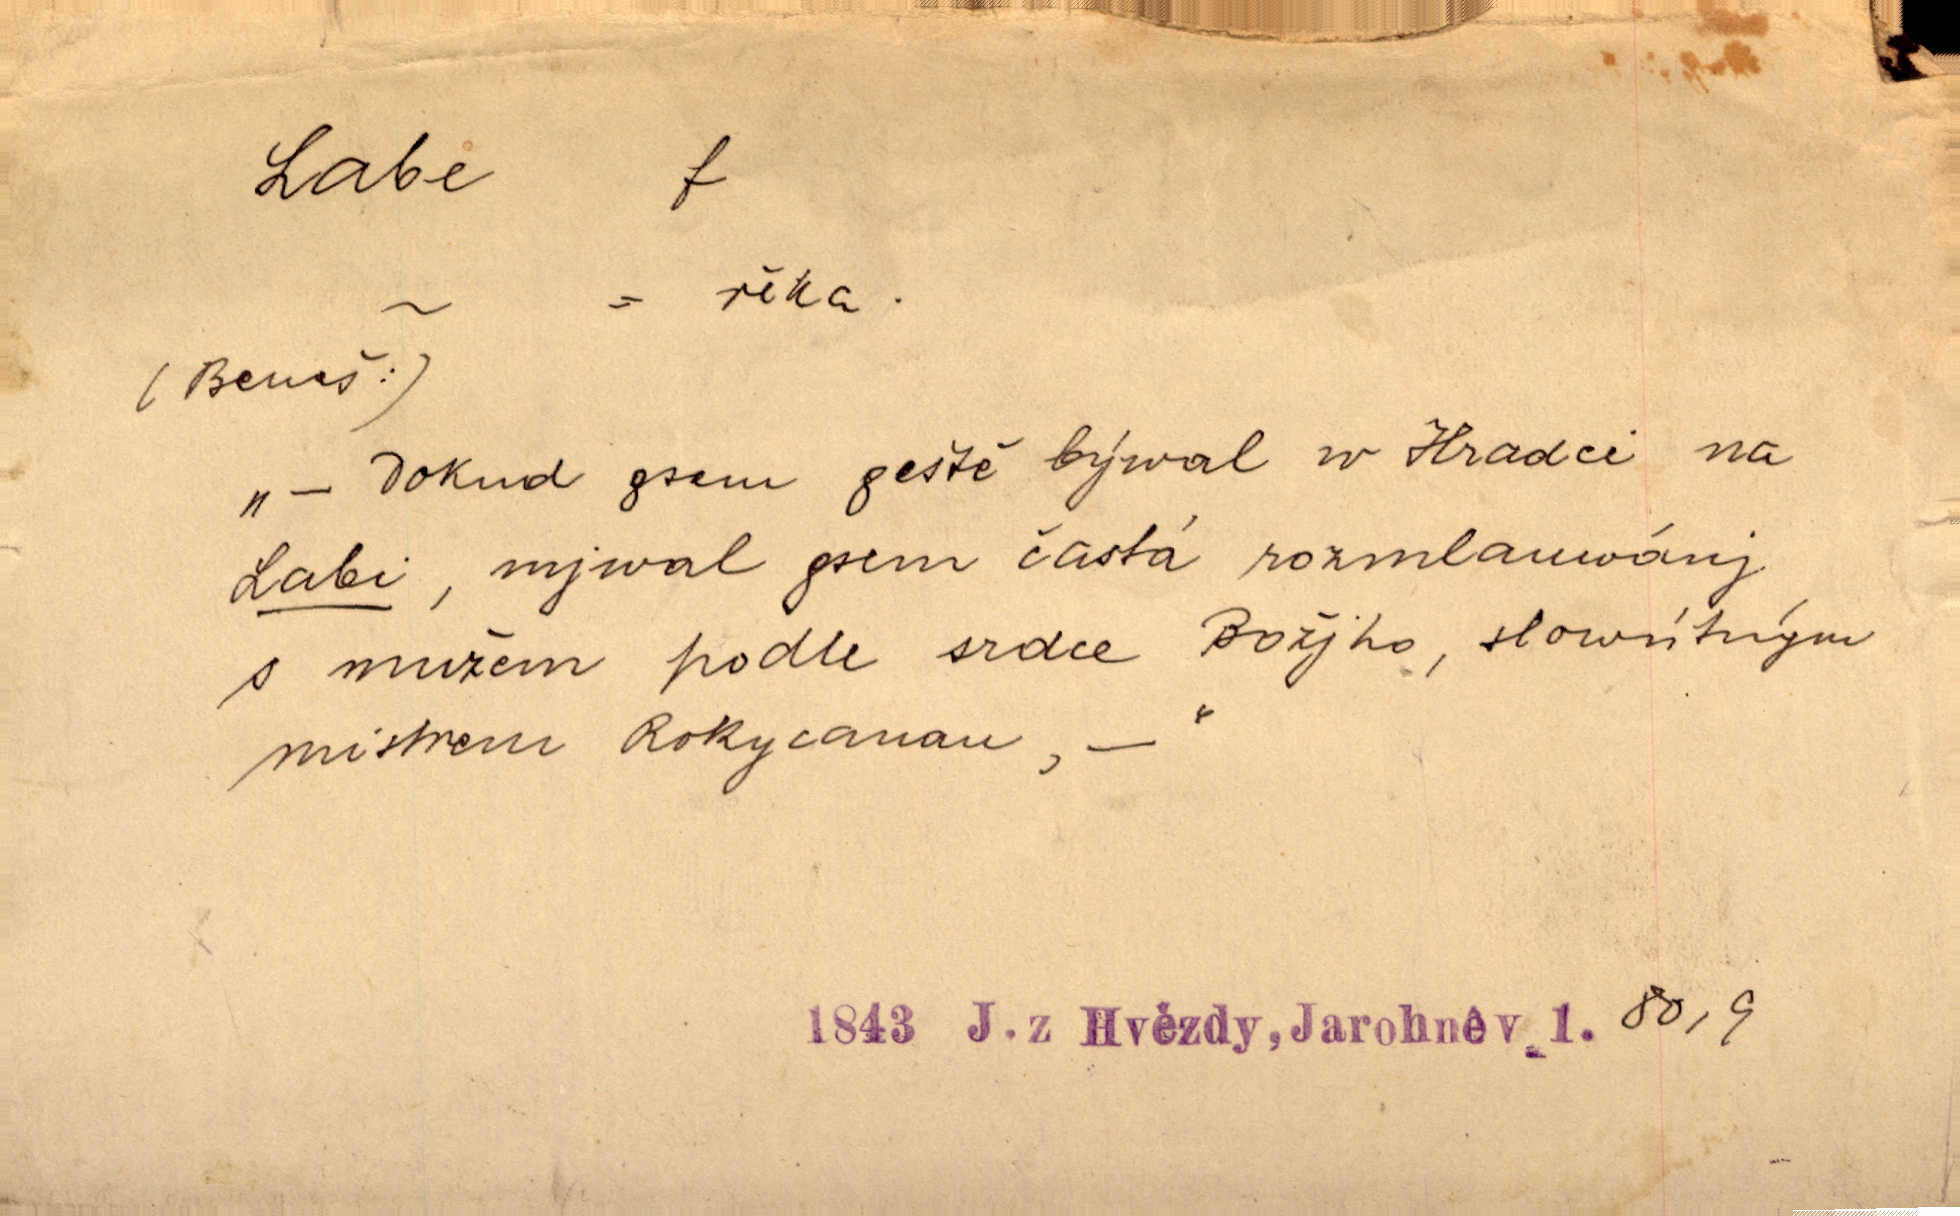 Labe f
~ = rěka.
(Beneš:)
„— Dokud gsem geště býwal w Hradci na
Labi, mjwal gsem častá rozmlauwánj
s mužem podle srdce Božjho, slowútným
mistrem Rokycanau, — “
1843 J. z Hvězdy, Jarohněv 1. 80, 9